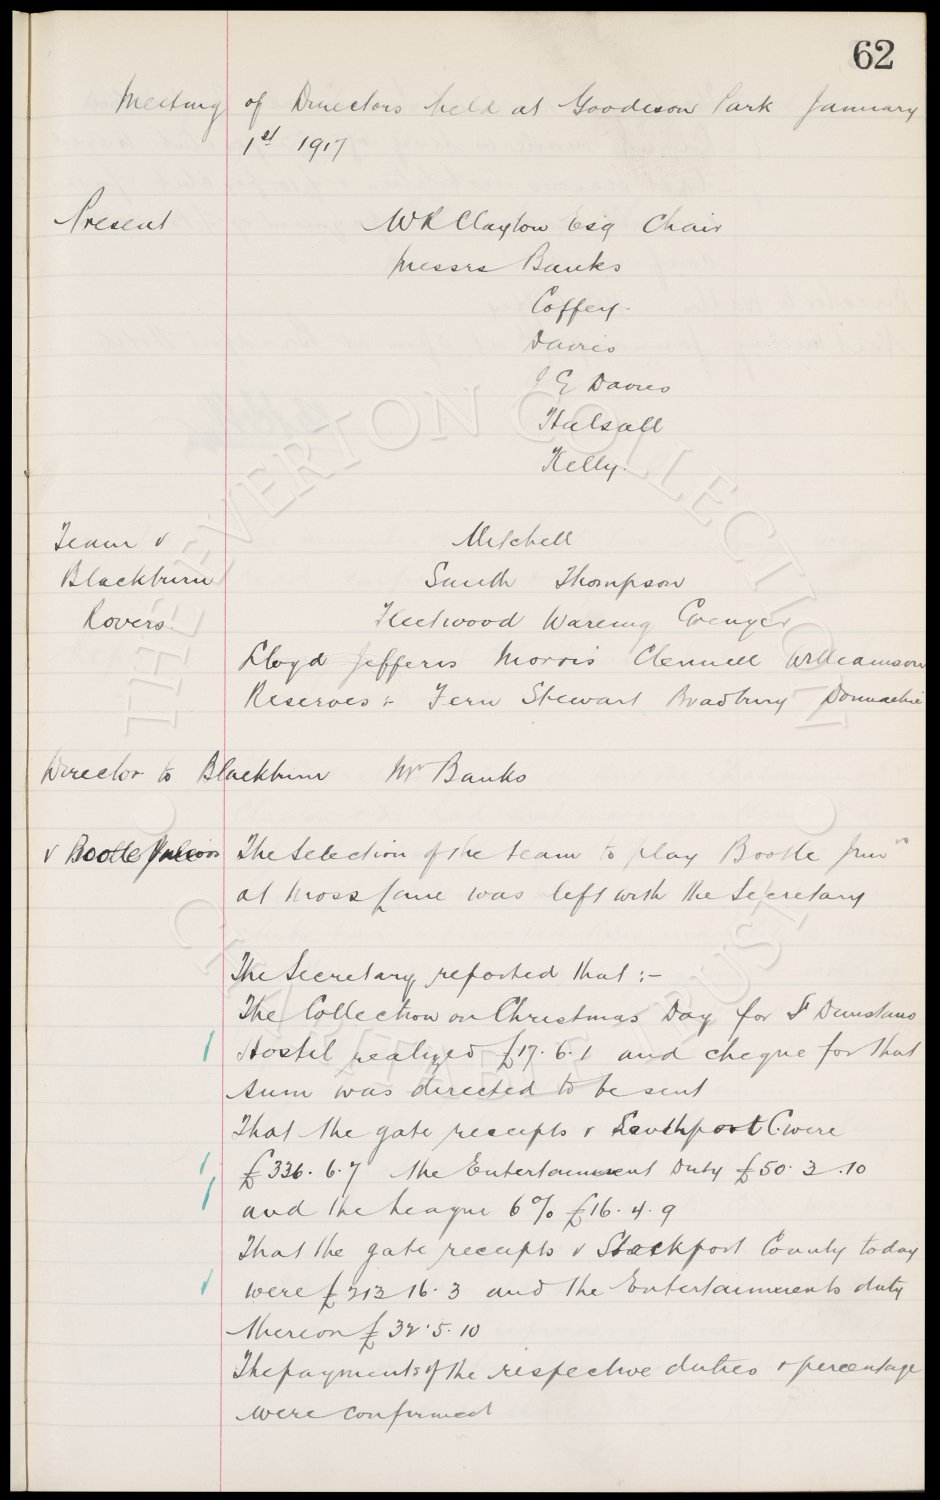 62
Meeting of Directors held at Goodison Park January
1st 1917
Present W R Clayton Esq Chair
Messrs Banks
Coffey.
Davies
J E Davies
Halsall
Kelly.
Team v Mitchell
Blackburn Smith Thompson
Rovers Fleetwood Wareing Grenyer
Lloyd Jefferis Morris Clennell Williamson
Reserves :- Fern Stewart Bradbury Donnachie
Director to Blackburn Mr Banks
v Bootle Juniors The Selection of the team to play Bootle Junrs
at Moss Lane was left with the Secretary
The Secretary reported that :-
The Collection on Christmas Day for St Dunstans
Hostel realized £17. 6. 1 and cheque for that
sum was directed to be sent
That the gate receipts v Southport C. were
£336. 6. 7 the Entertainment Duty £50. 3. 10
and the League 6% £16. 4. 9
That the gate receipts v Stockport County today
were £213 16. 3 and the Entertainments duty
thereon £32. 5. 10
The payments of the respective duties & percentage
were confirmed
THE EVERTON COLLECTION
CHARITABLE TRUST